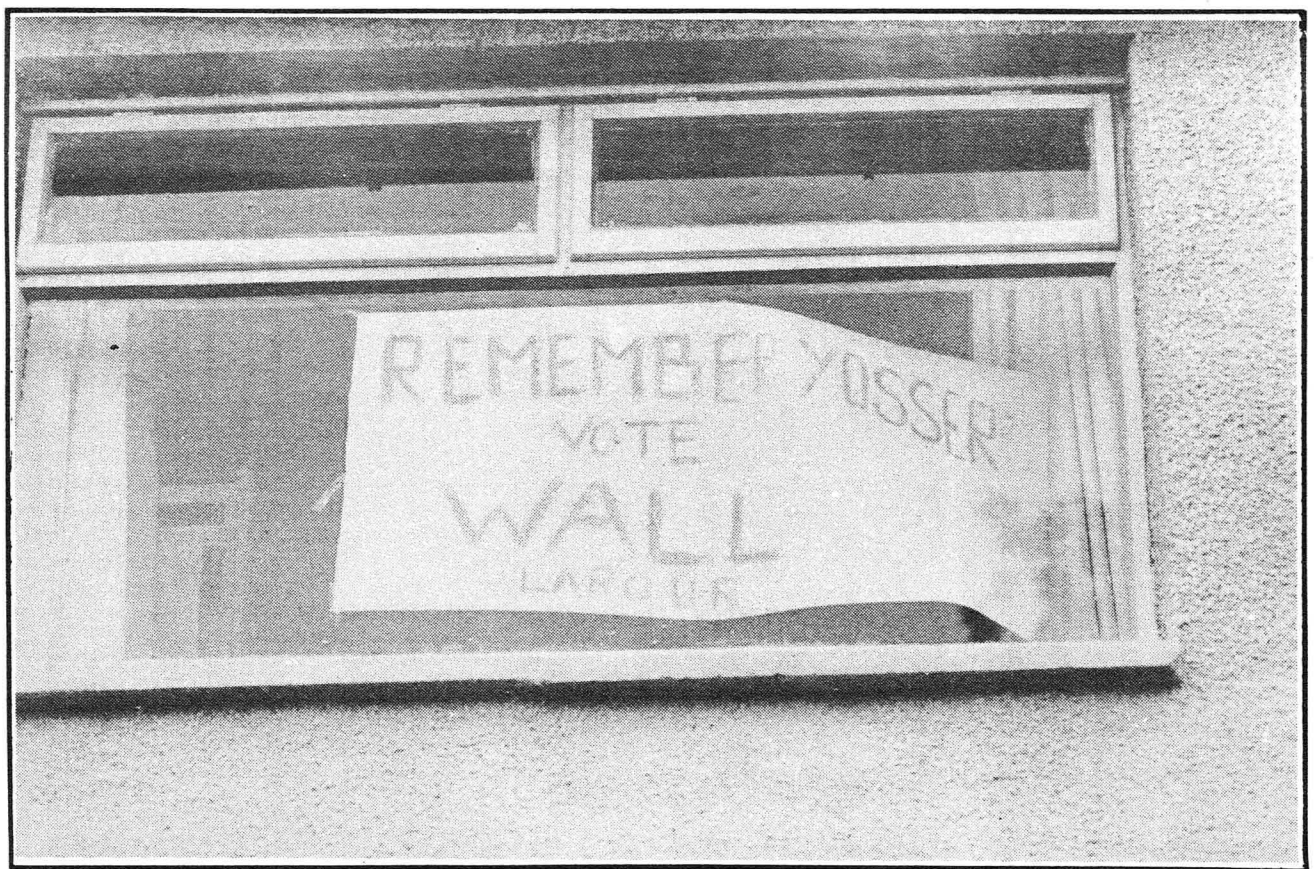 REMEMBER YOSSER
VOTE
WALL
LABOUR